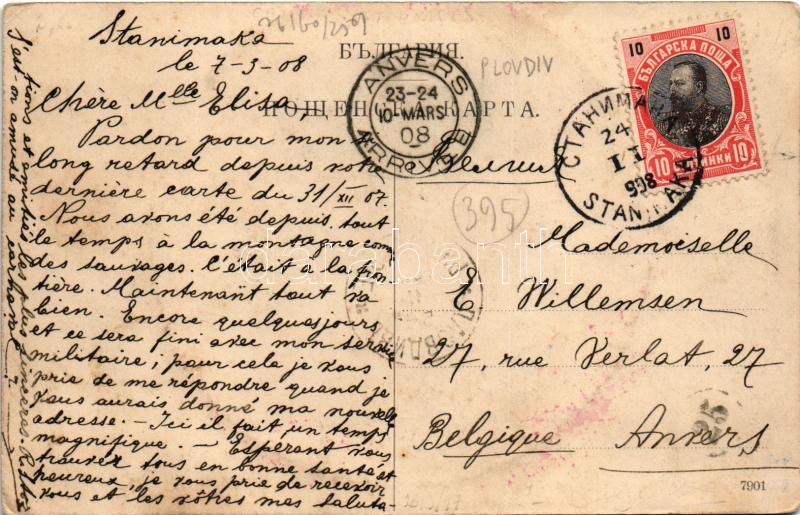 Stanimaka
le 7-3-08
Chère Mlle Elisa,
Pardon pour mon
long retard depuis votre
dernière carte du 31/XII 07.
Nous avons été depuis tout
le temps à la montagne comme
des sauvages. C'était à la fron-
tière. Maintenant tout va
bien. Encore quelques jours
et ce sera fini avec mon service
militaire; pour cela je vous
prie de me répondre quand je
vous aurais donné ma nouvelle
adresse. – Ici il fait un temps
magnifique. – Espérant vous
trouver tous en bonne santé et
heureux, je vous prie de recevoir
vous et les vôtres mes saluta-
tions et amitiés les plus sincères.
S'eut-on amusé au carnaval?
БЪЛГАРИЯ.
ПОЩЕНСКА КАРТА.
PLOVDIV
ANVERS
23-24
10 MARS
08
ARRIVÉE
10 10
БЪЛГАРСКА ПОЩА
10 СТОТИНКИ 10
СТАНИМАКА
24
II
908
STANIMAKA
Белгия
395
Mademoiselle
E Willemsen
27, rue Verlat, 27
Belgique Anvers
25
7901
darabanth